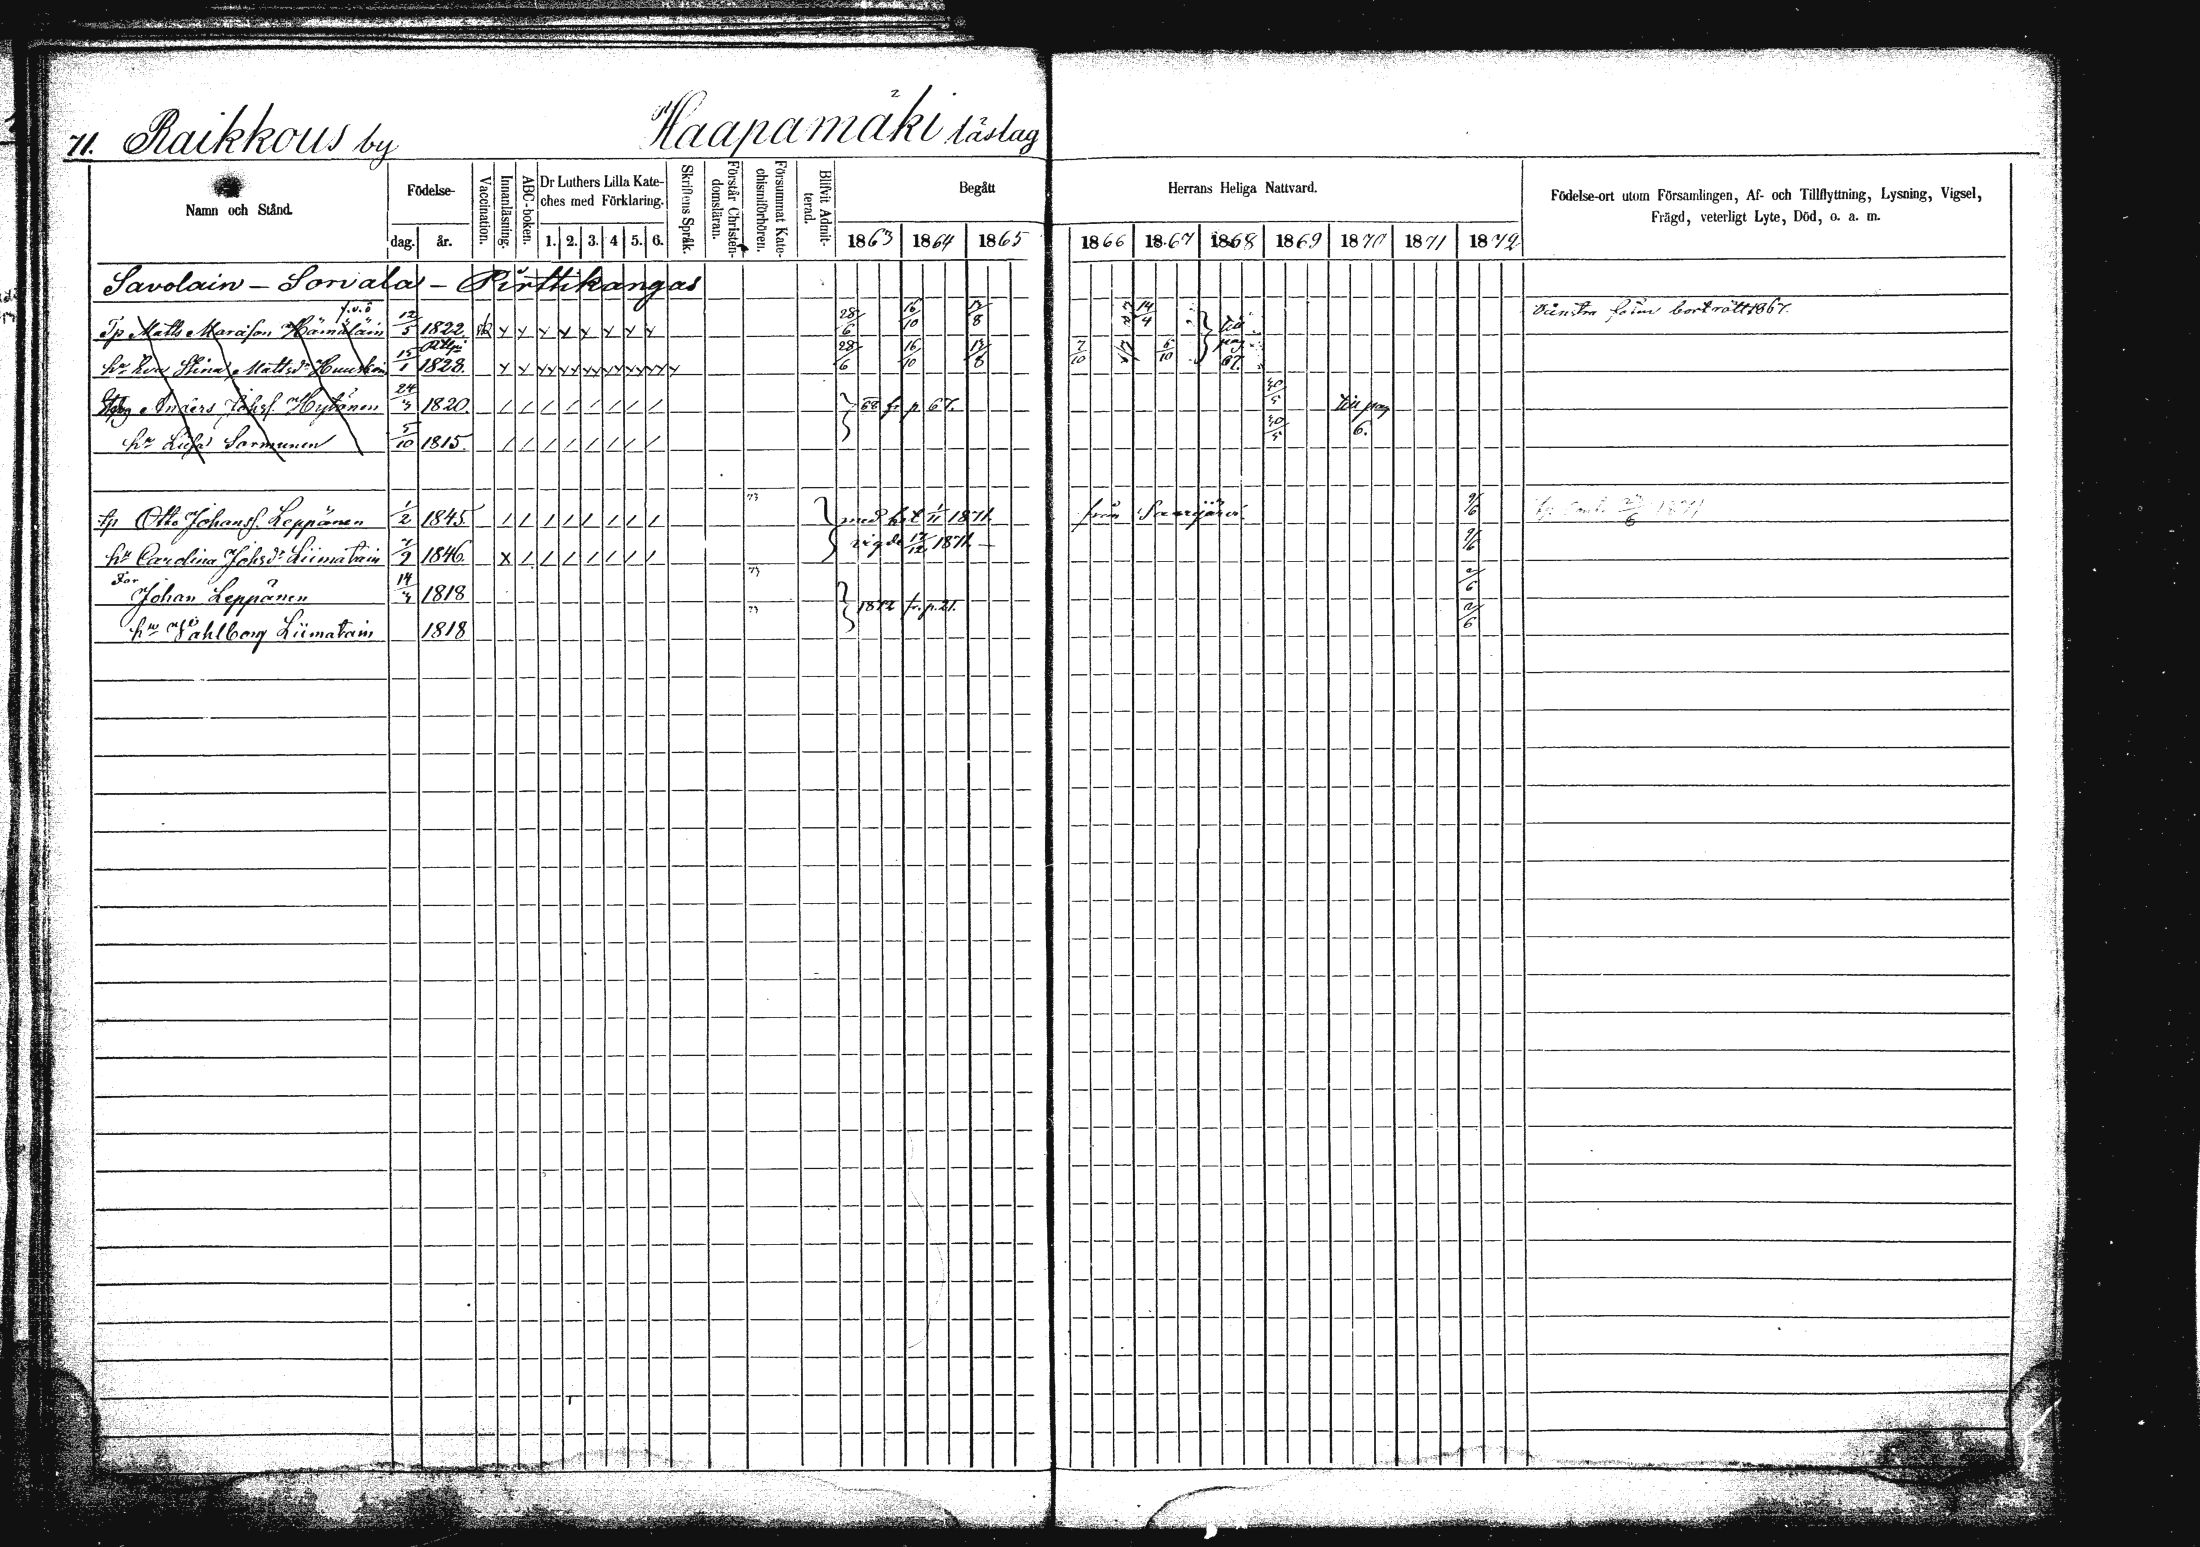 71. Raikkous by Haapamäki läslag
Namn och Stånd.
Födelse-
dag. år.
Vaccination.
Innanläsning.
ABC-boken.
Dr Luthers Lilla Kate-
ches med Förklaring.
1. 2. 3. 4 5. 6.
Skriftens Språk.
Förstår Christen-
domsläran.
Försummat Kate-
chismiförhören.
Blifvit Admit-
terad.
Begått Herrans Heliga Nattvard.
1863 1864 1865 1866 1867 1868 1869 1870 1871 1872
Födelse-ort utom Församlingen, Af- och Tillflyttning, Lysning, Vigsel,
Frägd, veterligt Lyte, Död, o. a. m.
Savolain – Sorvala – Pirttikangas
Tp Matts Hämäläin 12/5 1822. x x x x x x x x 28/6 16/10 13/8 14/4 till 1867.
hu Eva Stina Mattsdr 15/1 1828. 28/6 16/10 13/8 7/10 6/10 pag 67.
Anders Johsf. Hytönen 1820. / / / / / / / / } 68 fr p 67. till pag
hu Lisa Sormunen 5/10 1815. / / / / / / / / 6.
tp Otto Johansf. Leppänen 1/2 1845. / / / / / / / / 73 } med bet 1/11 1871. från Saarijärvi. 9/6
hu Carolina Johsdr Liimatain 1846. x / / / / / / / vigde 17/12 1871. – 9/6
Far
Johan Leppänen 1818 73 } 1872 fr. p. 21. 2/6
hu Wahlborg Liimatain 1818 73 2/6